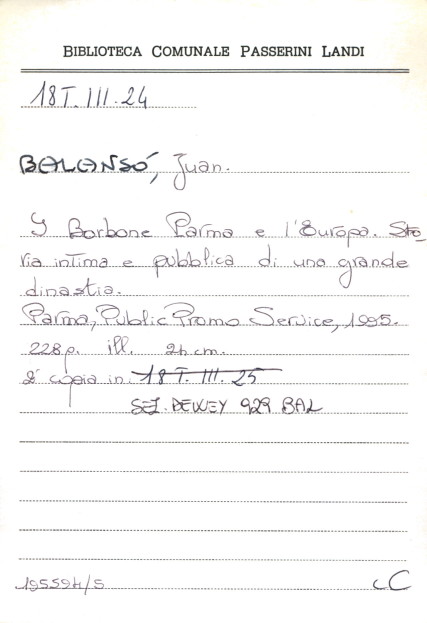 BIBLIOTECA COMUNALE PASSERINI LANDI
18T.III.24
BALANSÓ, Juan.
I Borbone Parma e l'Europa. Sto-
ria intima e pubblica di una grande
dinastia.
Parma, Public Promo Service, 1995.
228 p. ill. 24 cm.
2ª copia in: 18 T. III. 25
SEZ. DEWEY 929 BAL
195594/5 cC